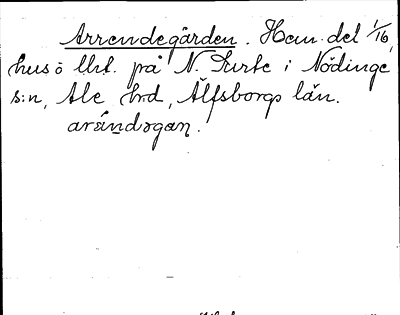 Arrendegården. Hem. del 1/16,
hus o. lht. på N. Surte i Nödinge
s:n, Ale hrd, Älfsborgs län.
arändəgan.